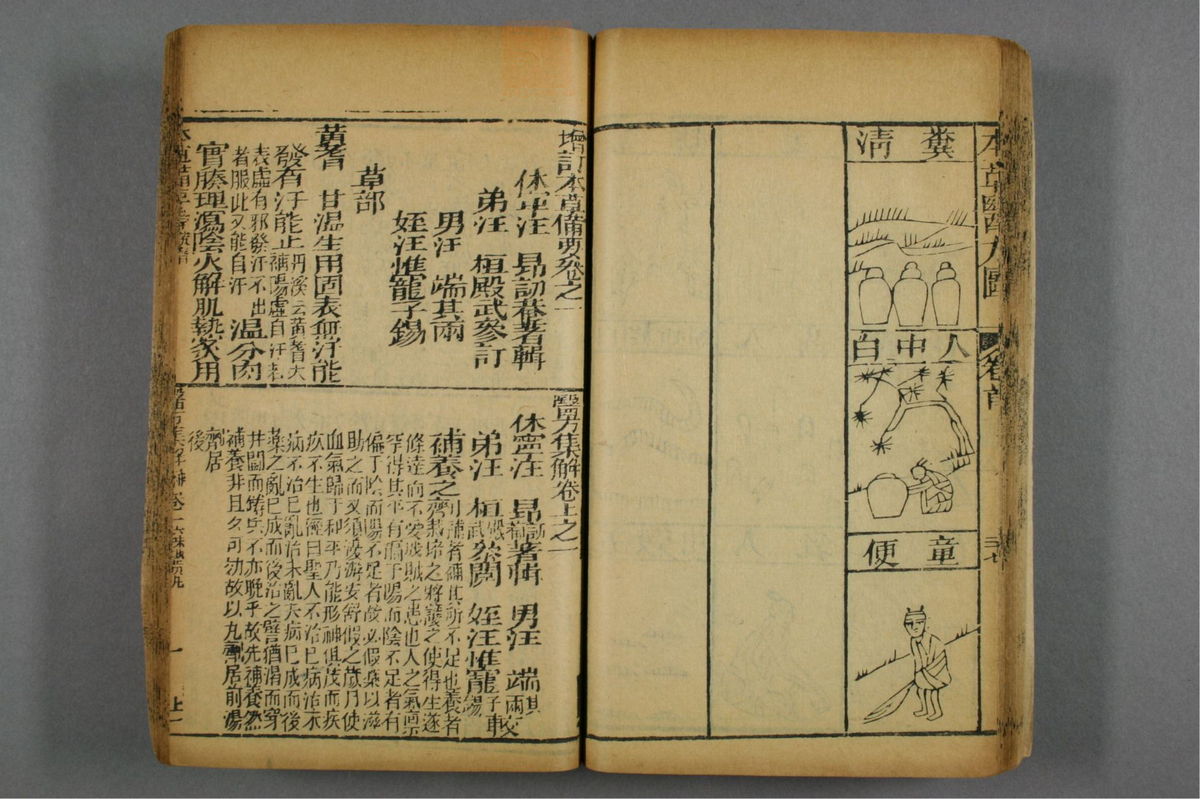 本草醫方合圖
卷首
三七
糞清
人中白
童便
增訂本草備要卷之一
休寧汪 昂訒菴著輯
弟汪 桓殿武參訂
男汪 端其兩
姪汪惟寵子錫
草部
黃耆 甘溫生用固表無汗能
發有汗能止丹溪云黃耆大
補陽虛自汗若
表虛有邪發汗不出
者服此又能自汗
溫分肉
實腠理瀉陰火解肌熱炙用
醫方集解卷上之一
休寧汪 昂訒菴著輯 男汪 端其兩較
弟汪 桓殿武參閱 姪汪惟寵子錫
補養之劑
補者補其所不足也養者
栽培之將護之使得生遂
條達而不受戕賊之患也人之氣禀
罕得其平有偏于陽而陰不足者有
偏于陰而陽不足者故必假藥以滋
助之而又須優游安舒假之歲月使
血氣歸于和平乃能形神俱茂而疾
疢不生也經曰聖人不治已病治未
病不治已亂治未亂夫病已成而後
藥之亂已成而後治之譬猶渴而穿
井鬪而鑄兵不亦晚乎故先補養然
補養非旦夕可効故以丸劑居前湯
劑居
後
一
上一